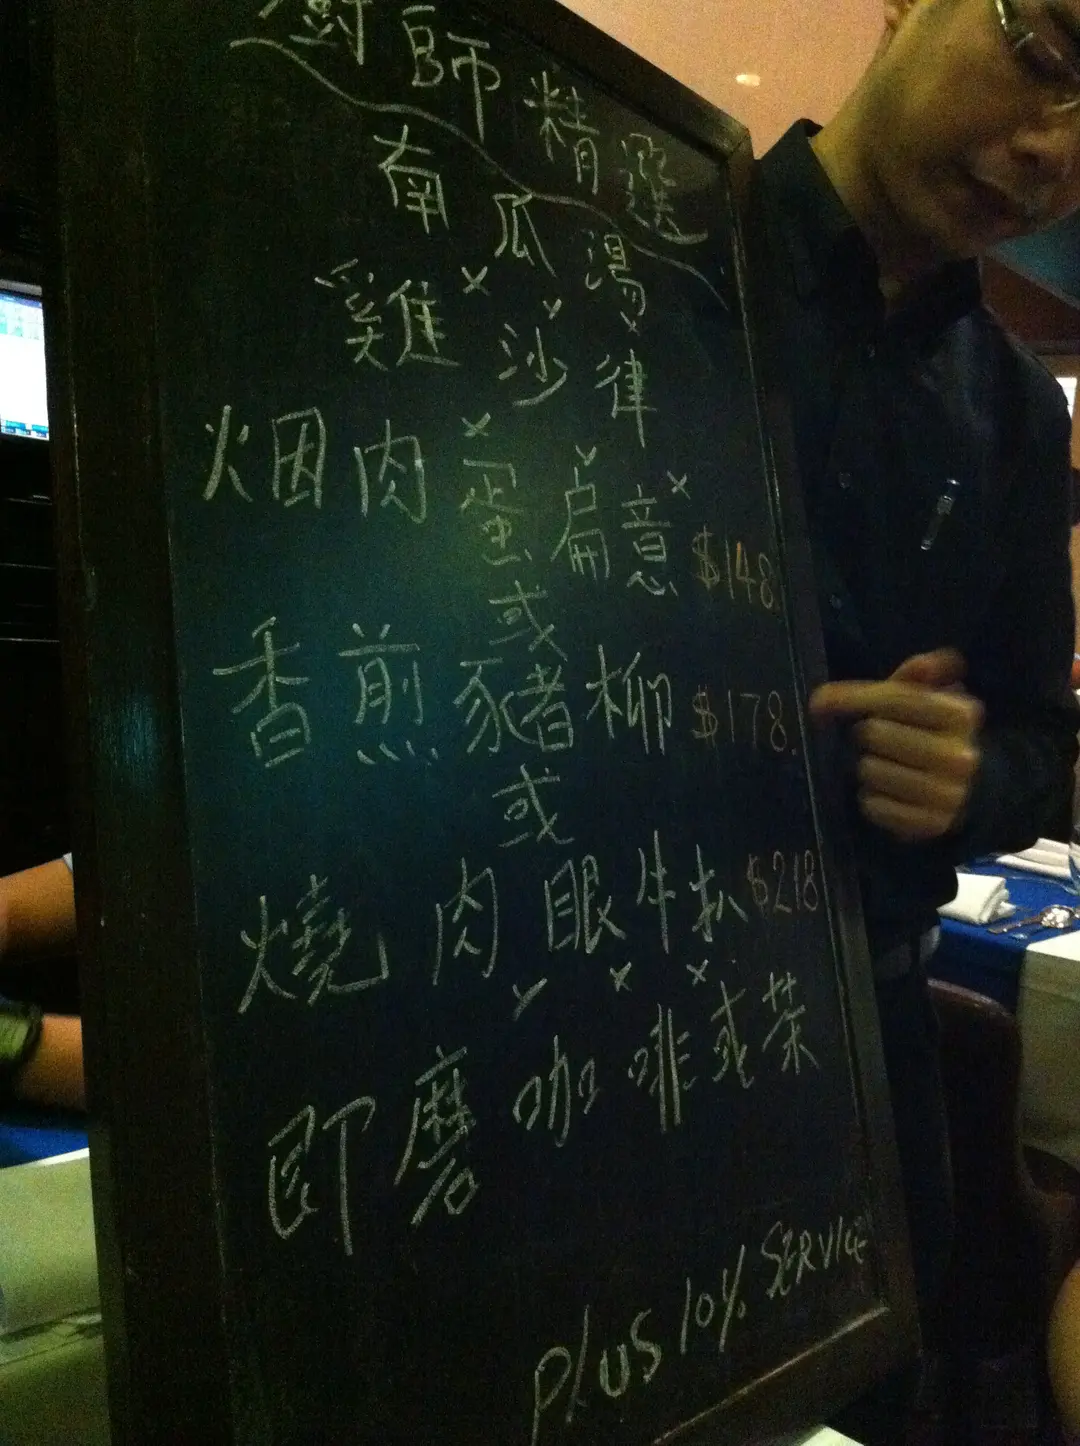 廚師精選
南瓜湯
x x x
雞沙律
x x x
烟肉蛋扁意 $148.
或
香煎豬柳 $178.
或
燒肉眼牛扒 $218
x x x
即磨咖啡或茶
Plus 10% SERVICE